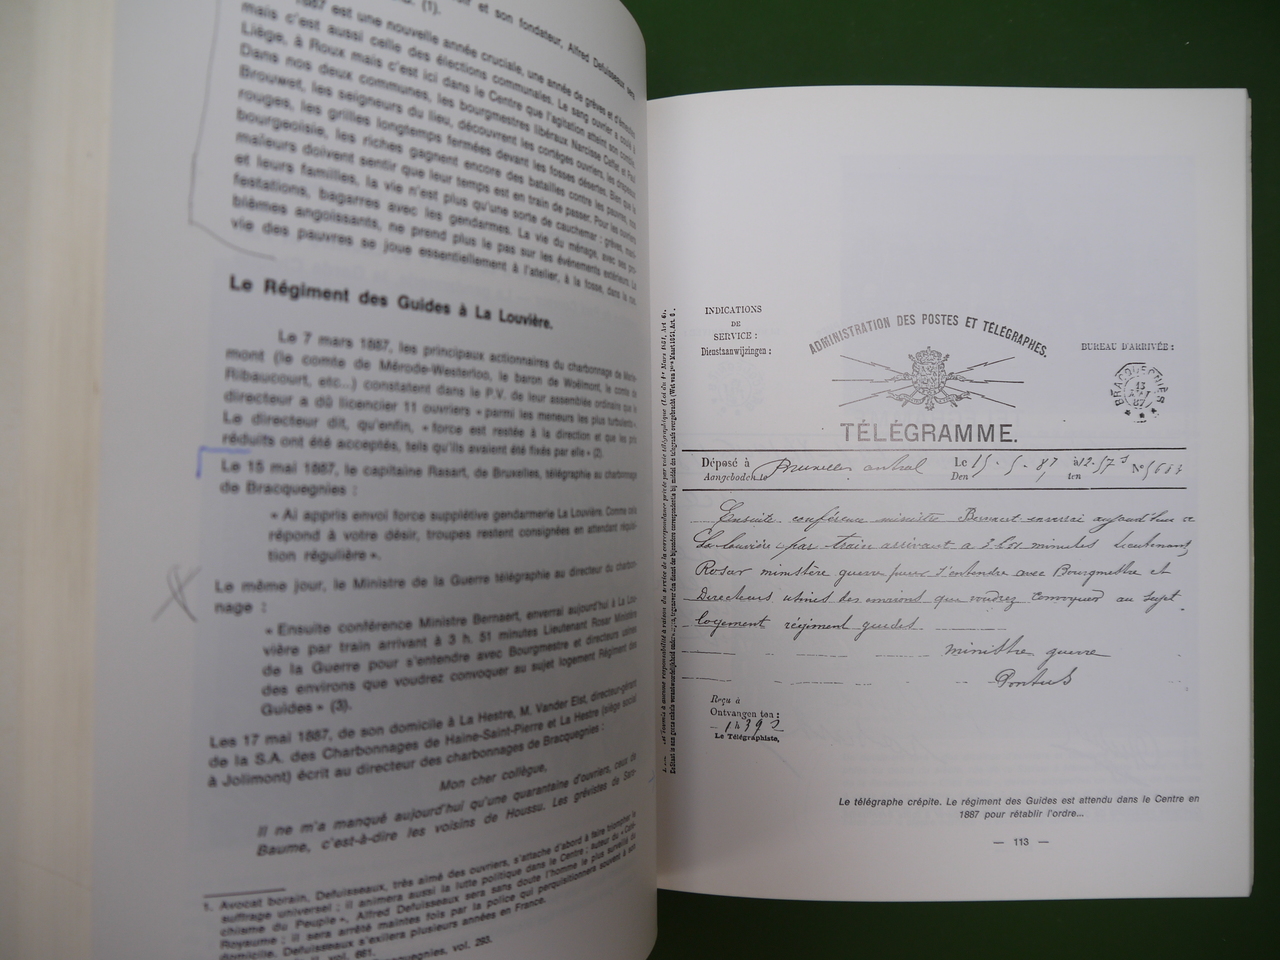 (1).
et son fondateur, Alfred Defuisseaux sera
1887 est une nouvelle année cruciale, une année de grèves et d'émeutes
mais c'est aussi celle des élections communales. Le sang ouvrier a coulé à
Liège, à Roux mais c'est ici dans le Centre que l'agitation atteint son comble.
Dans nos deux communes, les bourgmestres libéraux Narcisse et Paul
Brouwet, les seigneurs du lieu, découvrent les cortèges ouvriers, les drapeaux
rouges, les grilles longtemps fermées devant les fosses désertes. Bien que la
bourgeoisie, les riches gagnent encore des batailles contre les pauvres, nos
maïeurs doivent sentir que leur temps est en train de passer. Pour les ouvriers
et leurs familles, la vie n'est plus qu'une sorte de cauchemar : grèves, mani-
festations, bagarres avec les gendarmes. La vie du ménage, avec ses pro-
blèmes angoissants, ne prend plus le pas sur les événements extérieurs. La
vie des pauvres se joue essentiellement à l'atelier, à la fosse, dans la rue.
Le Régiment des Guides à La Louvière.
Le 7 mars 1887, les principaux actionnaires du charbonnage de Marie-
mont (le comte de Mérode-Westerloo, le baron de Woëlmont, le comte de
Ribaucourt, etc...) constatent dans le P.V. de leur assemblée ordinaire que le
directeur a dû licencier 11 ouvriers « parmi les meneurs les plus turbulents ».
Le directeur dit, qu'enfin, « force est restée à la direction et que les prix
réduits ont été acceptés, tels qu'ils avaient été fixés par elle » (2).
Le 15 mai 1887, le capitaine Rasart, de Bruxelles, télégraphie au charbonnage
de Bracquegnies :
« Ai appris envoi force supplétive gendarmerie La Louvière. Comme cela
répond à votre désir, troupes restent consignées en attendant réquisi-
tion régulière ».
Le même jour, le Ministre de la Guerre télégraphie au directeur du charbon-
nage :
« Ensuite conférence Ministre Bernaert, enverrai aujourd'hui à La Lou-
vière par train arrivant à 3 h. 51 minutes Lieutenant Rosar Ministère
de la Guerre pour s'entendre avec Bourgmestre et directeurs usines
des environs que voudrez convoquer au sujet logement Régiment des
Guides » (3).
Les 17 mai 1887, de son domicile à La Hestre, M. Vander Elst, directeur-gérant
de la S.A. des Charbonnages de Haine-Saint-Pierre et La Hestre (siège social
à Jolimont) écrit au directeur des charbonnages de Bracquegnies :
Mon cher collègue,
Il ne m'a manqué aujourd'hui qu'une quarantaine d'ouvriers, ceux de
Baume, c'est-à-dire les voisins de Houssu. Les grévistes de Sars-
1. Avocat borain, Defuisseaux, très aimé des ouvriers, s'attache d'abord à faire triompher le
suffrage universel ; il animera aussi la lutte politique dans le Centre : auteur du « Caté-
chisme du Peuple », Alfred Defuisseaux sera sans doute l'homme le plus surveillé du
Royaume ; il sera arrêté maintes fois par la police qui perquisitionnera souvent à son
domicile. Defuisseaux s'exilera plusieurs années en France.
vol. 661.
vol. 293.
INDICATIONS
DE
SERVICE :
Dienstaanwijzingen :
ADMINISTRATION DES POSTES ET TÉLÉGRAPHES.
BUREAU D'ARRIVÉE :
BRACQUEGNIES
15
87
TÉLÉGRAMME.
Déposé à Bruxelles central Le 15. 5. 87 à 12.57 s N° 5663
Aangeboden te Den ten
Ensuite conférence ministre Bernaert enverrai aujourd'hui a
La Louvière par train arrivant a 3 h 51 minutes lieutenant
Rosar ministère guerre pour s'entendre avec Bourgmestre et
Directeurs usines des environs que voudrez convoquer au sujet
logement régiment guides
ministre guerre
Pontus
Reçu à
Ontvangen ten :
14392
Le Télégraphiste,
Le télégraphe crépite. Le régiment des Guides est attendu dans le Centre en
1887 pour rétablir l'ordre...
— 113 —